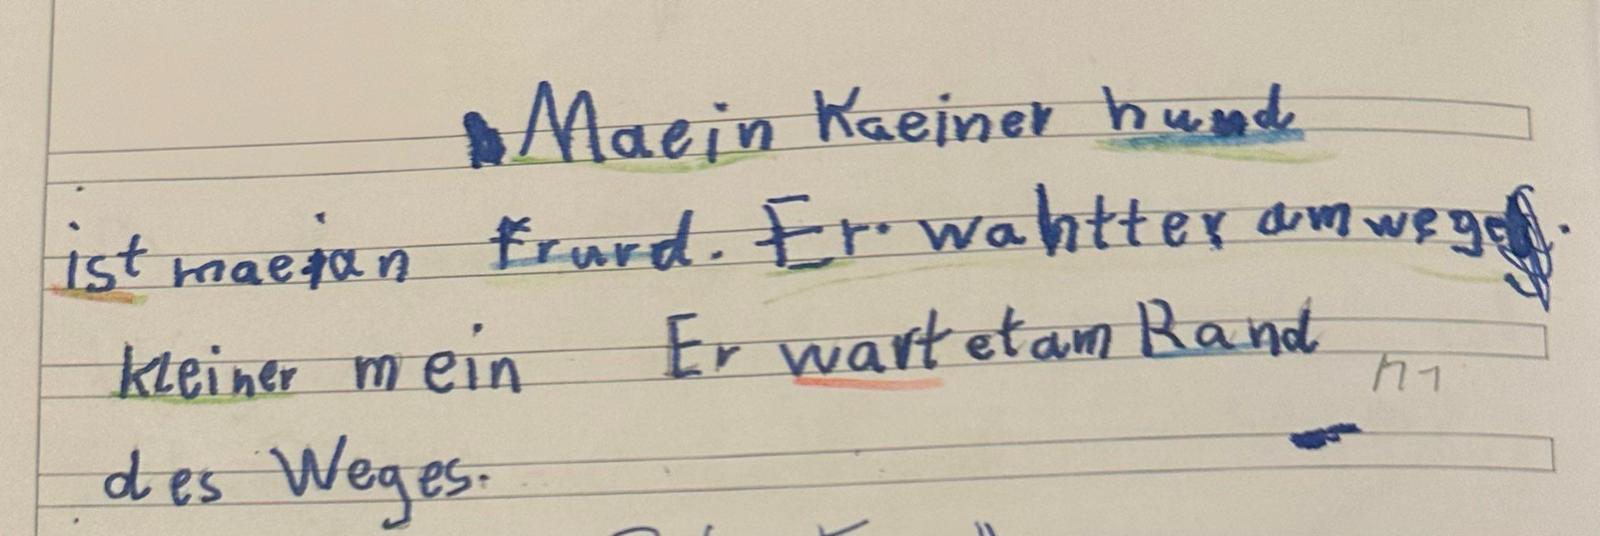 Maein Kaeiner hund
ist maeian frurd. Er wahtter am wege.
kleiner mein Er wartet am Rand
des Weges.